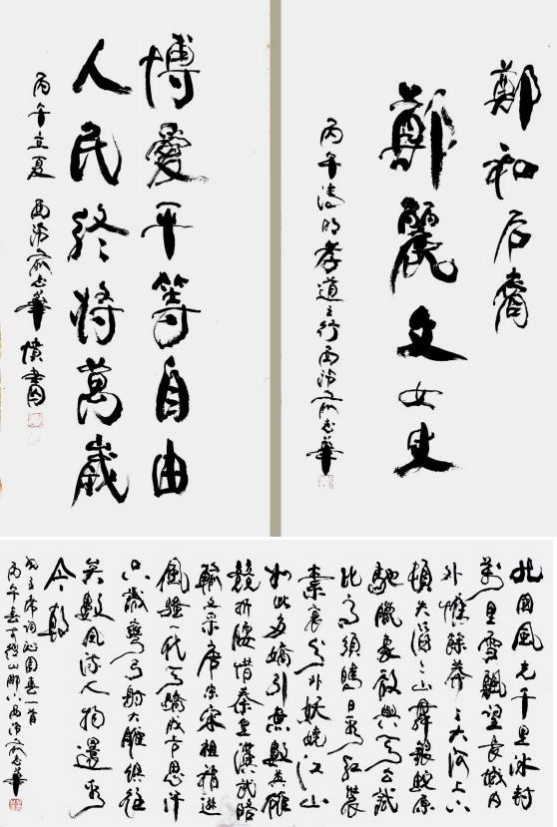 鄭和后裔
鄭麗文女史
丙午清明孝道之行 志華
博愛平等自由
人民終將萬歲
丙午立夏 志華 憤書
北国風光千里冰封
萬里雪飄望長城内
外惟餘莽々大河上下
頓失滔々山舞銀蛇原
馳臘象欲與天公試
比高須晴日看红装
素裹分外妖嬈江山
如此多嬌引無數英雄
競折腰惜秦皇漢武略
輸文采唐宗宋祖稍遜
風騷一代天驕成吉思汗
只識彎弓射大雕俱往
矣數風流人物還看
今朝
毛主席詞沁園春一首
丙午春 志華